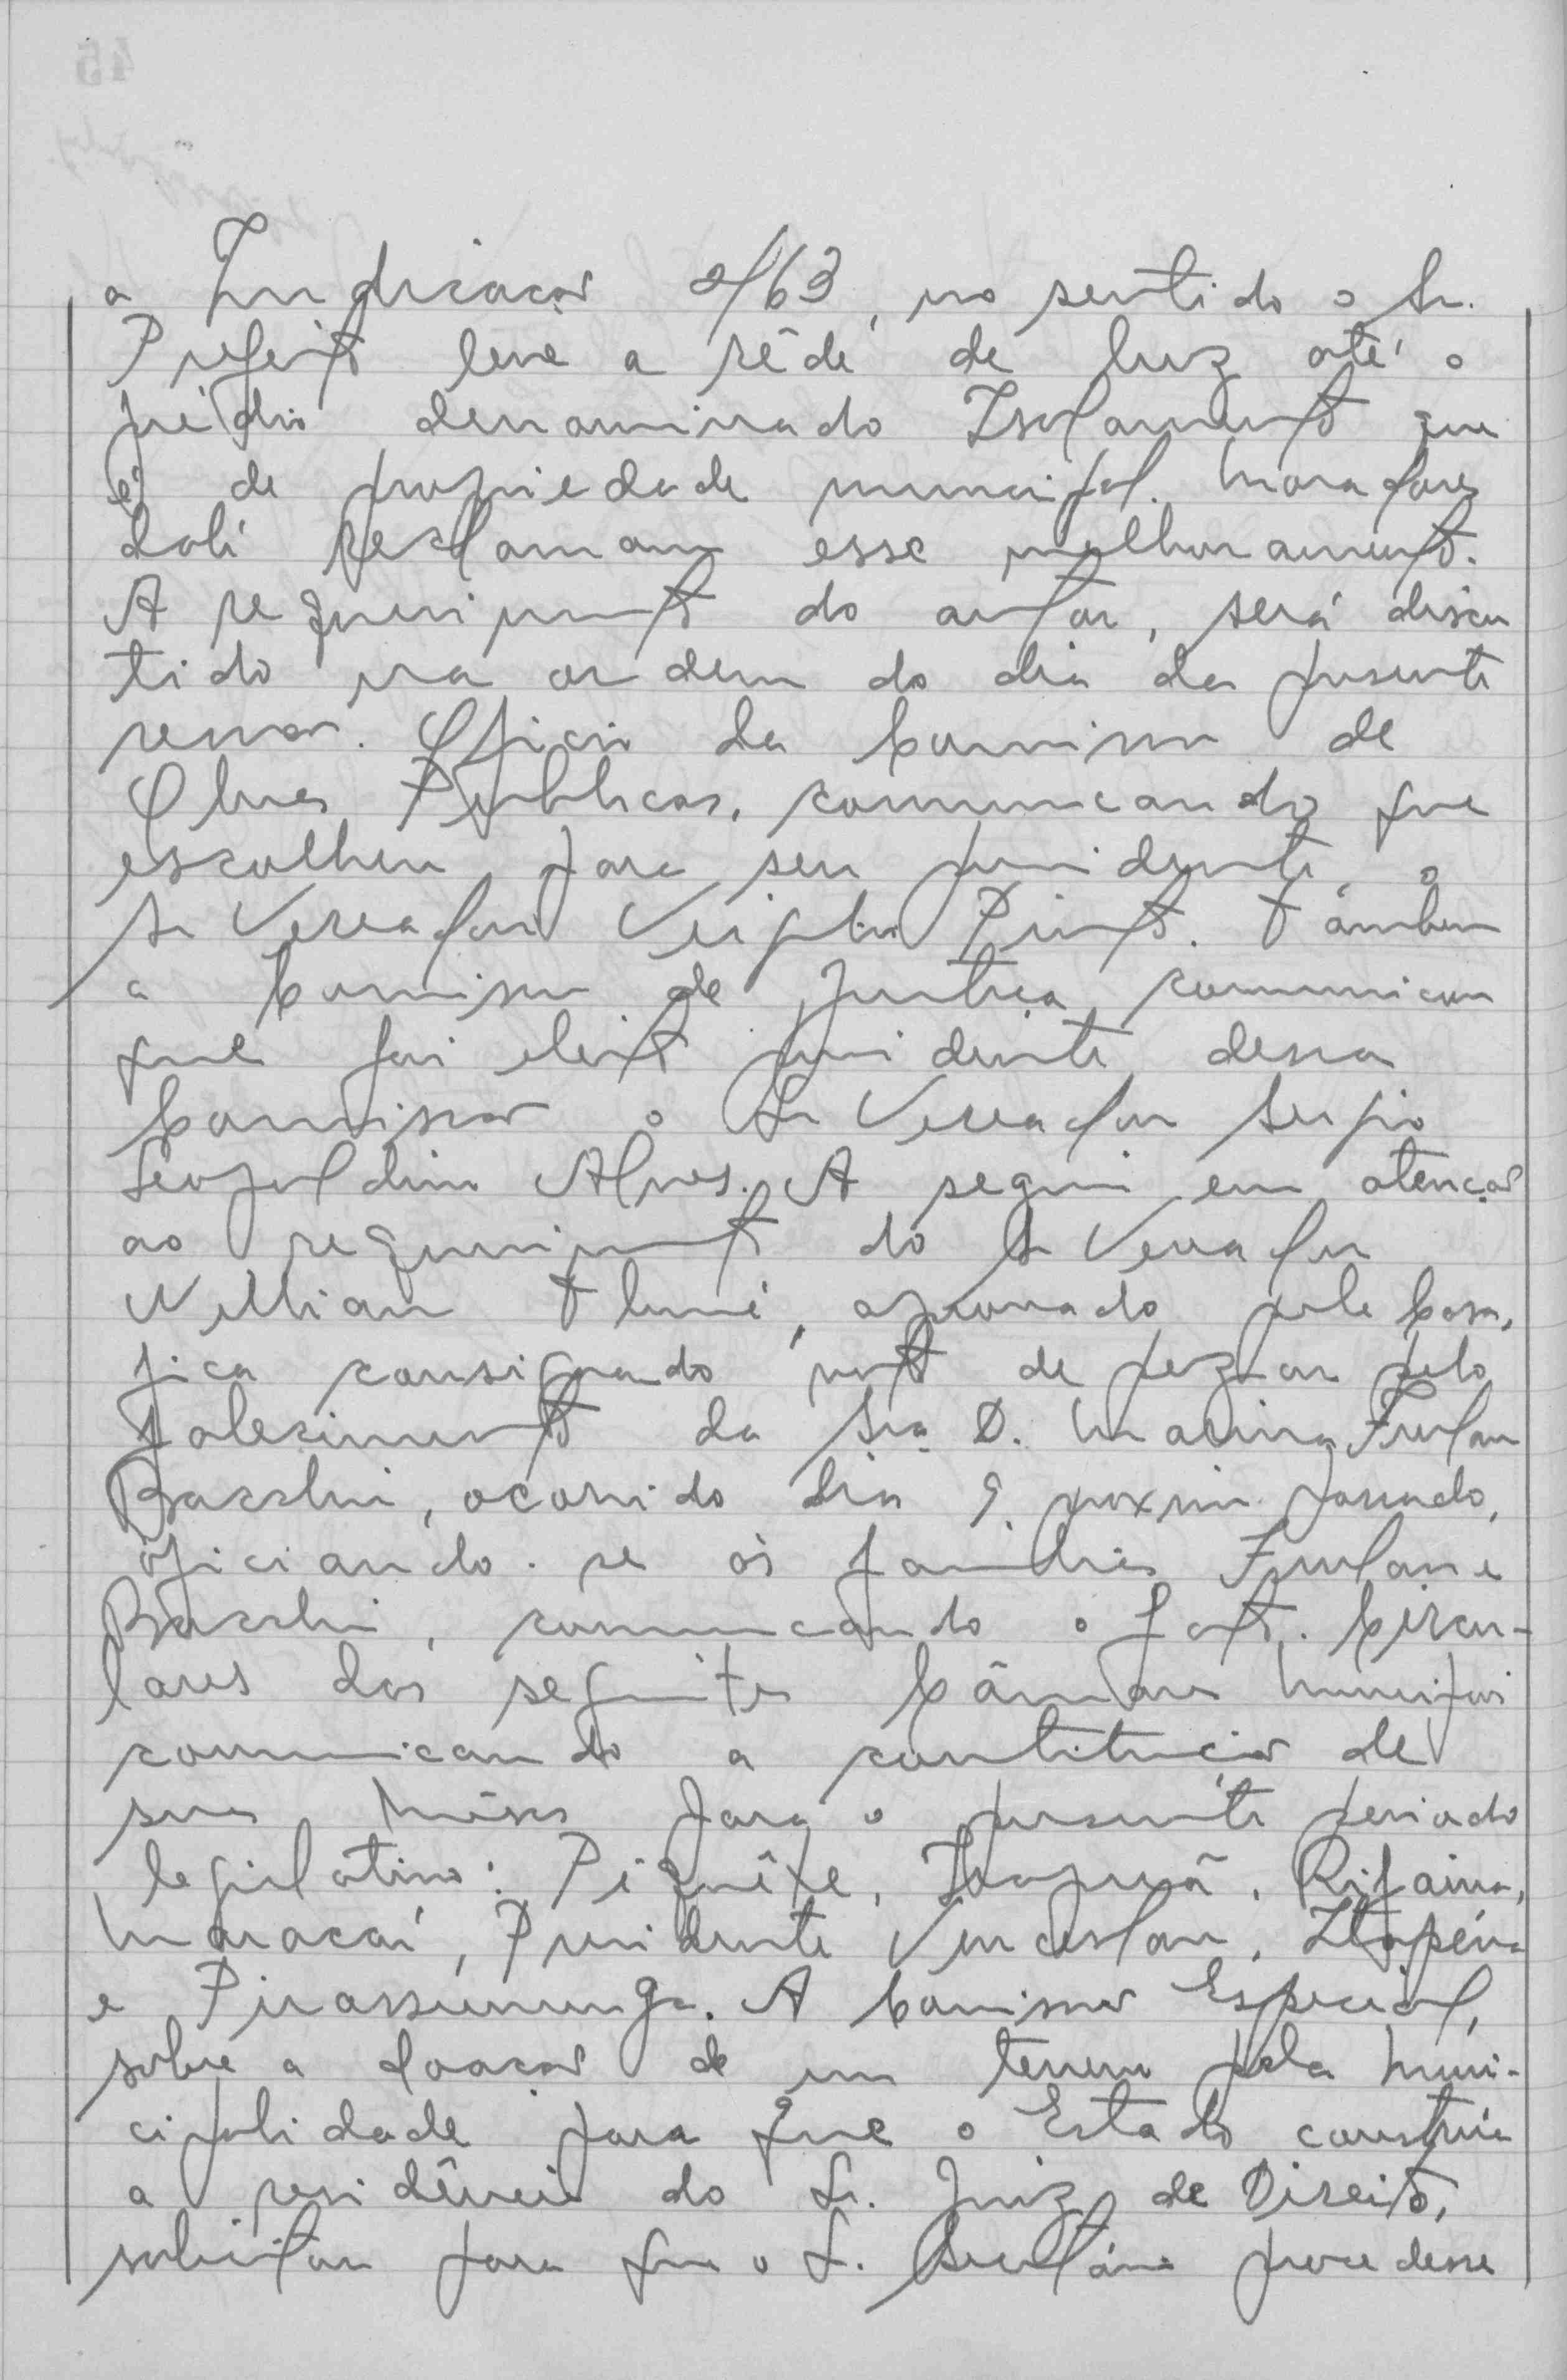 a Indicação 2/63, no sentido o Sr.
Prefeito leve a rêde de luz até o
prédio denominado Isolamento que
é de propriedade municipal. Moradores
dali reclamam esse melhoramento.
A requerimento do autor, será discu
tido na ordem do dia da presente
sessão. Ofício da Comissão de
Obras Públicas, comunicando que
escolheu para seu presidente, o
Sr Vereador Virgilio Pinto. Também
a Comissão de Justiça, comunicou
que foi eleito presidente dessa
Comissão o Sr Vereador Sergio
Leopoldino Alves. A seguir em atenção
ao requerimento do Sr Vereador
Willian Thomé, aprovado pela Casa,
fica consignado voto de pezar pelo
falecimento da Sra D. Marina Furlan
Bacchi, ocorrido dia 9. proximo passado,
oficiando-se às familias Furlan e
Bacchi, comunicando o fato. Circu-
lares das seguintes Câmaras Municipais
comunicando a constituição de
suas Mêsas para o presente periodo
legislativo: Piquête, Irapuã, Rifaina,
Maracaí, Presidente Venceslau, Itapéva
e Pirassununga. A Comissão Especial,
sobre a doação de um terreno pela Muni-
cipalidade para que o Estado construa
a residência do Sr. Juiz de Direito,
solicitou para que o Sr. Secretário procedesse
45